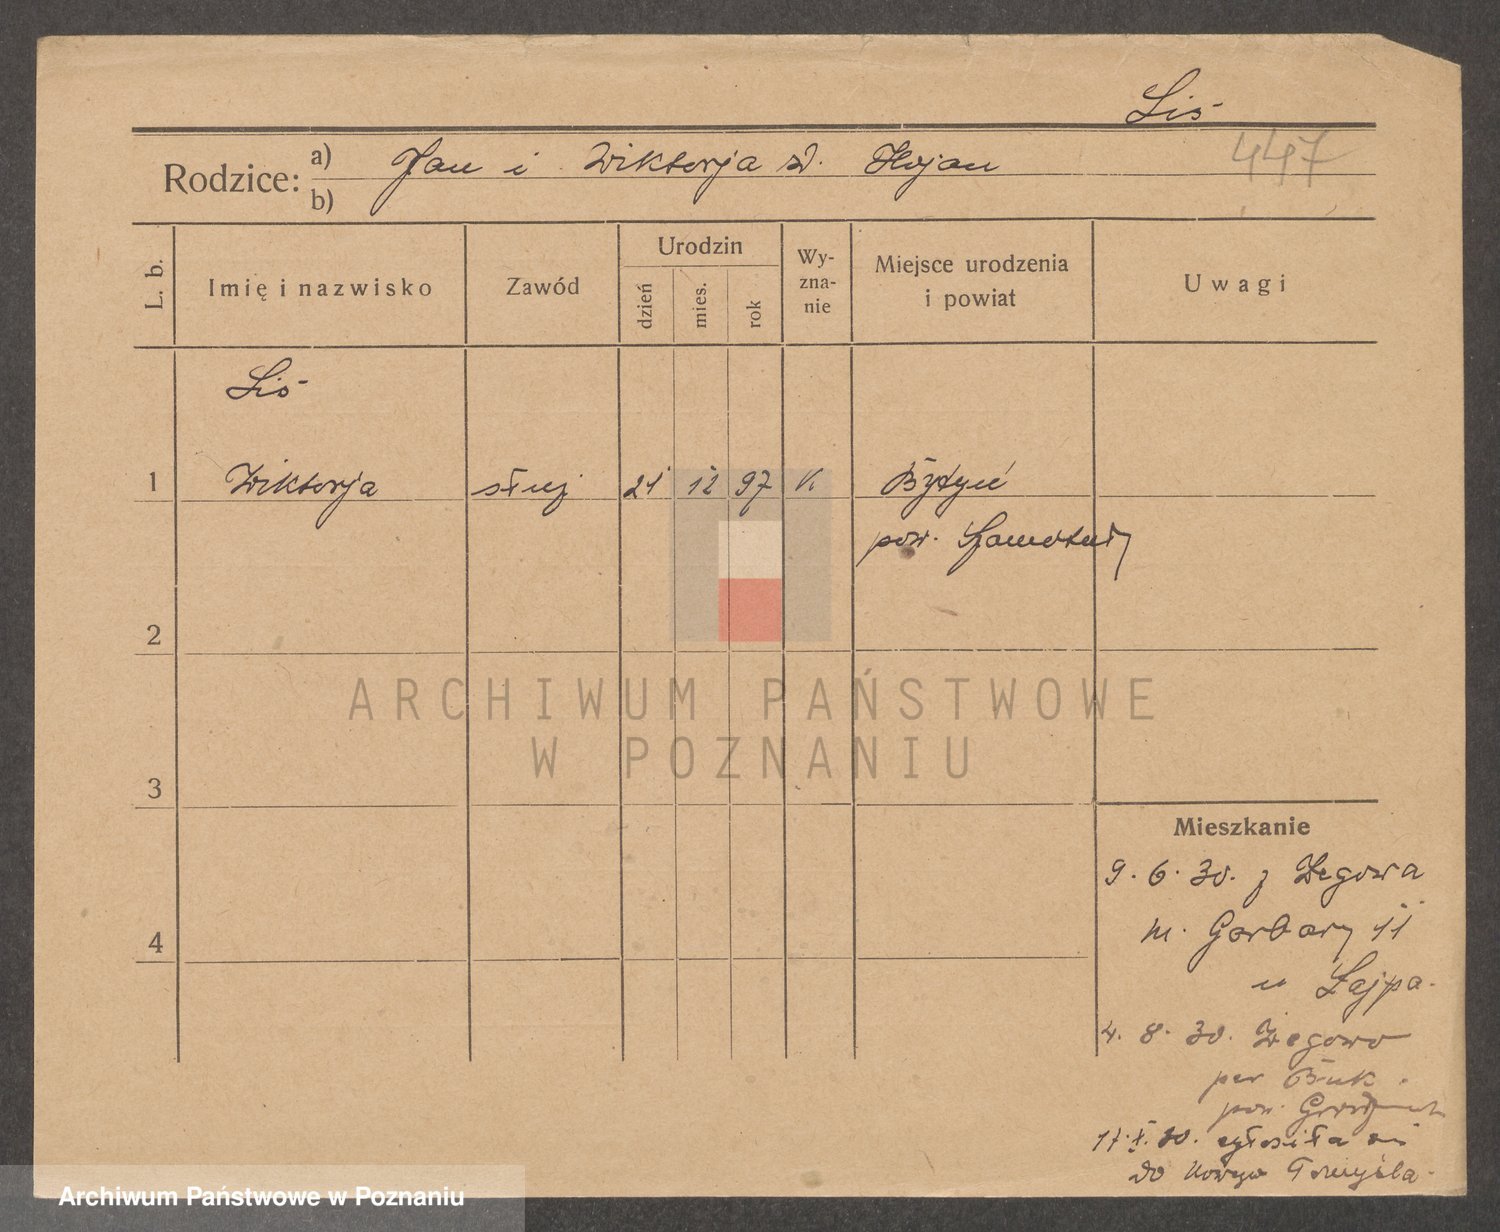 Liś
447
Rodzice:
a) Jan i Wiktorja d. Hojan
b)
L. b.
Imię i nazwisko
Zawód
Urodzin
dzień
mies.
rok
Wy-
zna-
nie
Miejsce urodzenia
i powiat
Uwagi
Liś
1 Wiktorja służ 21 12 97 K Bytyń
pow. Szamotuły
2
3
4
ARCHIWUM PAŃSTWOWE
W POZNANIU
Mieszkanie
9. 6. 30. z Wegowa
m. Garbary 11
u Łajpa.
4. 8. 30. Wegowo
per Buk.
pow. Grodzisk
17. X. 30. zgłosiła się
do Nowego Tomyśla.
Archiwum Państwowe w Poznaniu